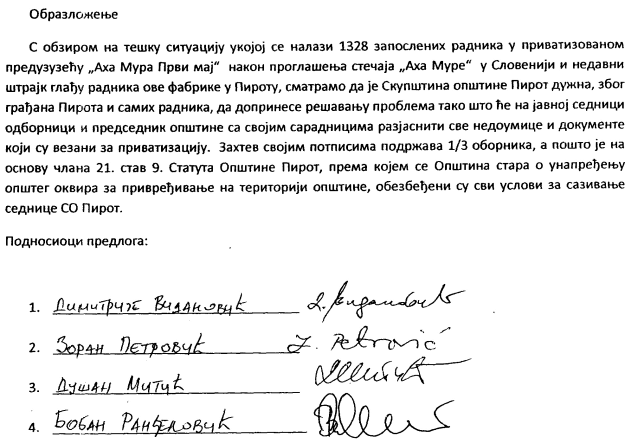 Образложење
С обзиром на тешку ситуацију укојој се налази 1328 запослених радника у приватизованом
предузузећу „Аха Мура Први мај“ након проглашења стечаја „Аха Муре“ у Словенији и недавни
штрајк глађу радника ове фабрике у Пироту, сматрамо да је Скупштина општине Пирот дужна, због
грађана Пирота и самих радника, да допринесе решавању проблема тако што ће на јавној седници
одборници и председник општине са својим сарадницима разјаснити све недоумице и документе
који су везани за приватизацију. Захтев својим потписима подржава 1/3 оборника, а пошто је на
основу члана 21. став 9. Статута Општине Пирот, према којем се Општина стара о унапређењу
општег оквира за привређивање на територији општине, обезбеђени су сви услови за сазивање
седнице СО Пирот.
Подносиоци предлога:
1. Димитрије Видановић
2. Зоран Петровић Z. Petrović
3. Душан Митић
4. Бобан Ранђеловић